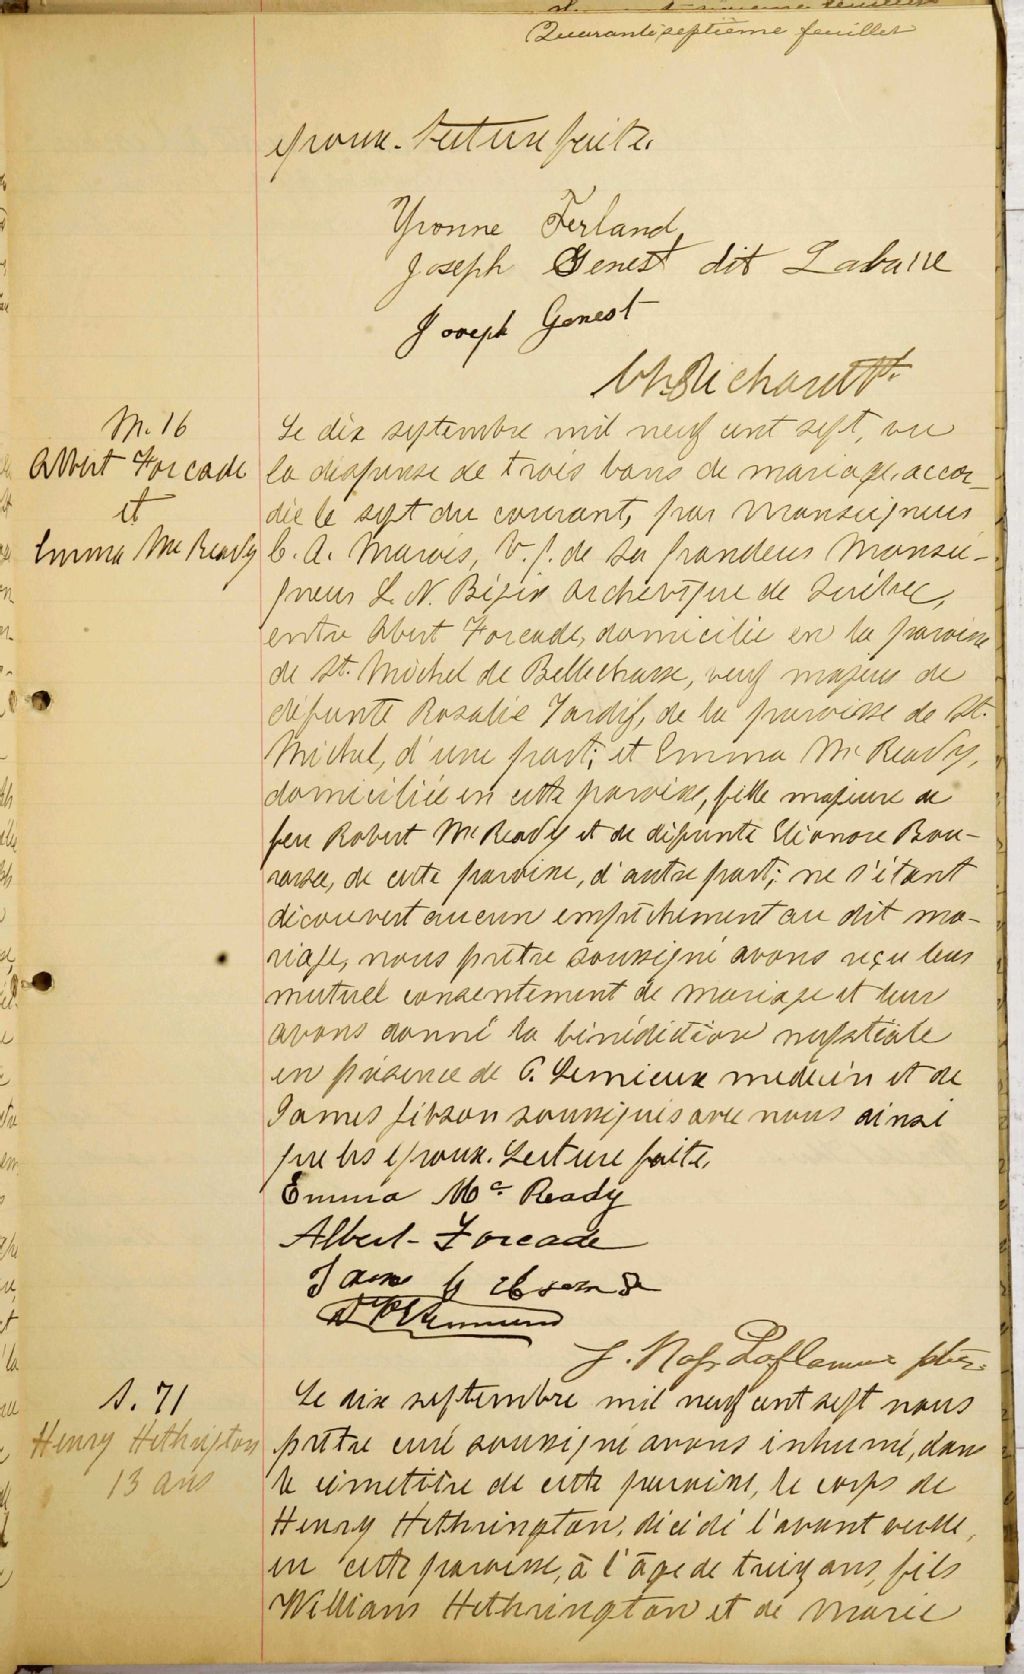 Quarante septième feuillet
époux. Lecture faite.
Yvonne Ferland
Joseph Genest dit Labarre
Joseph Genest
Ch. Richard Ptr.
M. 16
Albert Forcade
et
Emma Mc Ready
Le dix septembre mil neuf cent sept, vu
la dispense de trois bans de mariage, accor-
dée le sept du courant, par Monseigneur
C. A. Marois, V. G. de Sa Grandeur Monsei-
gneur L. N. Bégin Archevêque de Québec,
entre Albert Forcade, domicilié en la paroisse
de St. Michel de Bellechasse, veuf majeur de
défunte Rosalie Tardif, de la paroisse de St.
Michel, d'une part; et Emma Mc Ready,
domiciliée en cette paroisse, fille majeure de
feu Robert Mc Ready et de défunte Eléonore Bou-
rassa, de cette paroisse, d'autre part; ne s'étant
découvert aucun empêchement au dit ma-
riage, nous prêtre soussigné avons reçu leur
mutuel consentement de mariage et leur
avons donné la bénédiction nuptiale
en présence de Lemieux médecin et de
James Gibson soussignés avec nous ainsi
que les époux. Lecture faite.
Emma Mc Ready
Albert Forcade
James Gibson Sr
J. Nap. Laflamme ptre.
S. 71
Henry Hethrington
13 ans
Le dix septembre mil neuf cent sept nous
prêtre curé soussigné avons inhumé, dans
le cimetière de cette paroisse, le corps de
Henry Hethrington, décédé l'avant veille,
en cette paroisse, à l'âge de treize ans, fils
William Hethrington et de Marie